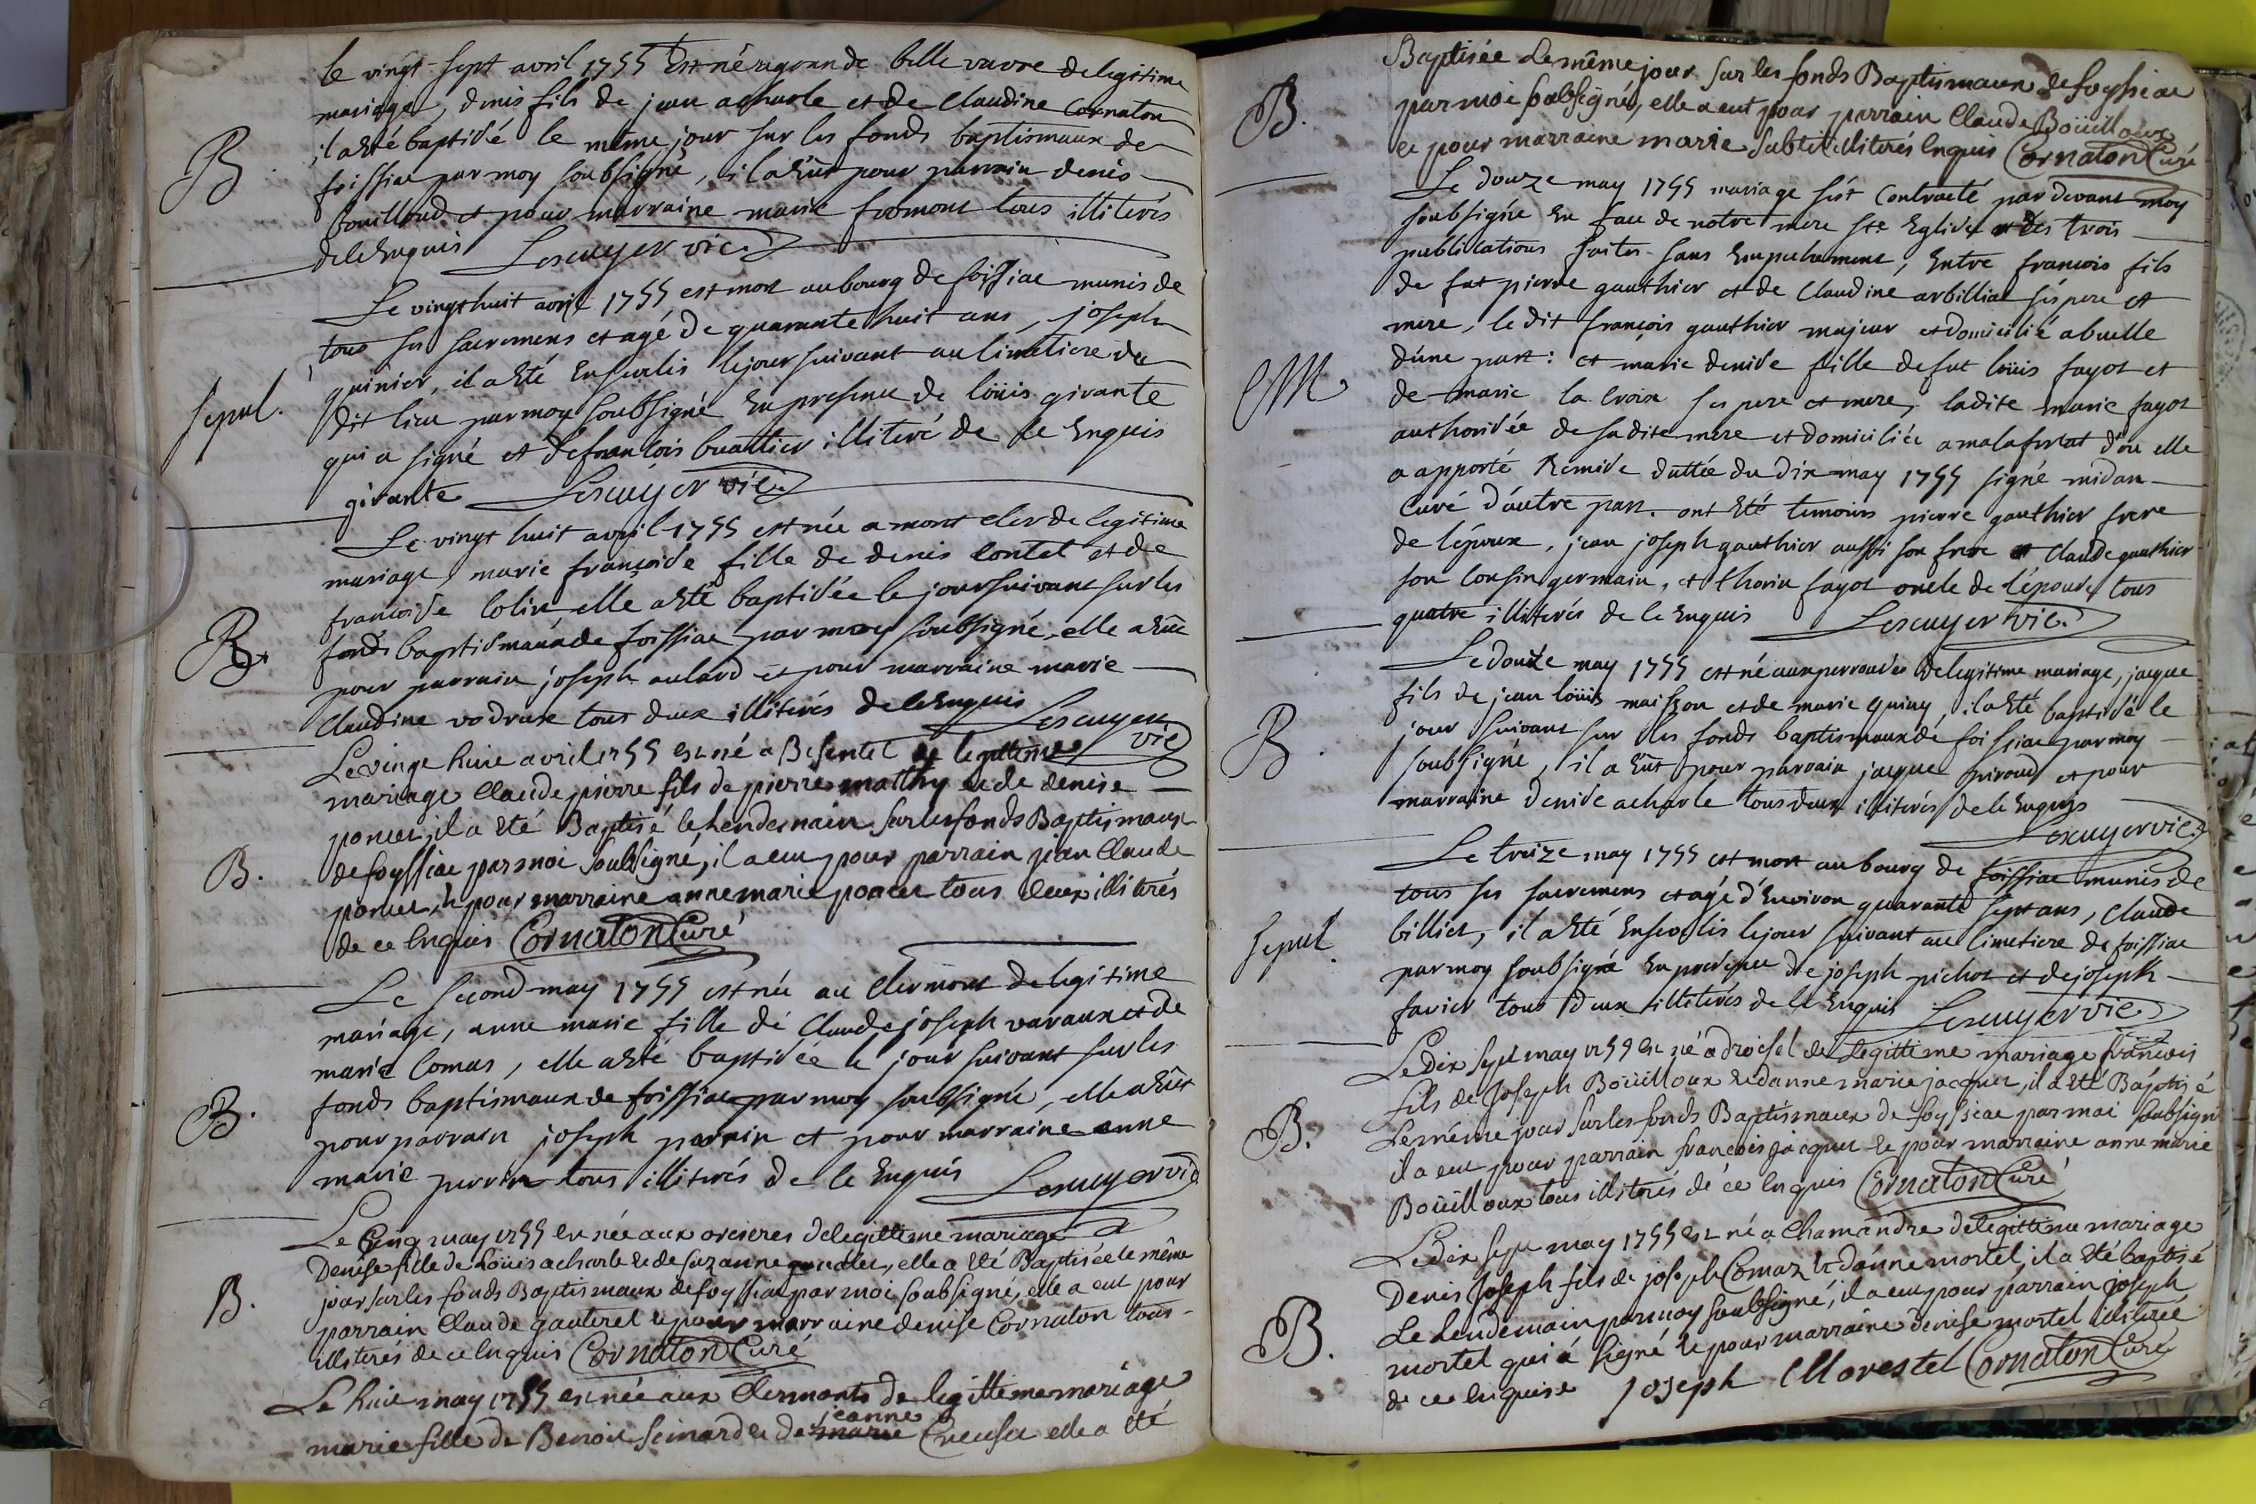 le vingt-sept avril 1755 Est né a grande belle vavre de legitime
mariage, denis fils de jean acharle et de Claudine Cornaton
B
il a Eté baptisé le même jour sur les fonds baptismaux de
foissiac par moy soubsigné, il a Eüt pour parrain denis
bouilloud et pour marraine marie fromont tous illiterés
de le Enquis Lescuyer vic.
Le vingt huit avril 1755 est mort au bourg de foissiac munis de
tous ses sacremens et agé de quarante huit ans, joseph
sepul.
quinier, il a Eté Enseveli le jour suivant au cimetiere du
dit lieu par moy soubsigné En presence de loüis girante
qui a signé et de francois buattier illiteré de ce Enquis
girante Lescuyer vic.
Le vingt huit avril 1755 est née a mont cler de legitime
mariage, marie françoise fille de denis contet et de
B
francoise colin elle a Eté baptisée le jour suivant sur les
fonds baptismaux de foissiac par moy soubsigné, elle a Eüe
pour parrain joseph aulard et pour marraine marie
Claudine vodreux tous deux illiterés de le Enquis Lescuyer
vic
Le vingt huit avril 1755 est né a Bisentel de legittime
mariage Claude pierre fils de pierre matthy et de denise
poncet, il a Eté Baptisé le lendemain sur les fonds Baptismaux
B.
de foyssiac par moi soubsigné, il a eu pour parrain jean Claude
poncet, et pour marraine anne marie poncet tous deux illiterés
de ce Enquis Cornaton Curé
Le second may 1755 est née au clermont de legitime
mariage, anne marie fille de Claude joseph varaux et de
marie Comas, elle a Eté baptisée le jour suivant sur les
B.
fonds baptismaux de foissiac par moy soubsigné, elle a Eüt
pour parrain joseph perrin et pour marraine anne
marie perrin tous illiterés de le Enquis Lescuyer vic
Le Cinq may 1755 est née aux orcieres de legittime mariage
Denise fille de Loüis acharle et de suzanne, elle a Eté Baptisée le même
B.
jour sur les fonds Baptismaux de foyssiac par moi soubsigné, elle a eut pour
parrain Claude gauteret et pour marraine denise Cornaton tous
illiterés de ce Enquis Cornaton Curé
Le huit may 1755 est née aux Clermonts de legittime mariage
jeanne
marie fille de Benoit simard et de marie Creusa elle a Eté
Baptisée le même jour sur les fonds Baptismaux de foyssiac
B.
par moi soubsigné, elle a eut pour parrain Claude Boüilloux
et pour marraine marie subtil illiterés Enquis Cornaton Curé
Le douze may 1755 mariage s'est Contracté par devant moy
soubsigné En face de notre mere ste Eglise et des trois
publications faites sans Empechement, Entre francois fils
de fut pierre gauthier et de Claudine arbilliat ses pere et
mere, le dit françois gauthier majeur et domicilié a buelle
M
d'une part: et marie denise fille de fut loüis fayot et
de marie la croix ses pere et mere, ladite marie fayot
authorisée de sadite mere et domiciliée a malafretat d'ou elle
a apporté Remise dattée du dix may 1755 signé midan
curé d'autre part. ont Eté temoins pierre gauthier frere
de l'époux, jean joseph gauthier aussi son frere et Claude gauthier
son cousin germain, et thorin fayot oncle de l'épouse tous
quatre illiterés de le Enquis Lescuyer vic.
Le douze may 1755 est né aux perroudes de legitime mariage, jaque
fils de jean loüis maisson et de marie quiny, il a Eté baptisé le
B.
jour suivant sur les fonds baptismaux de foissiac par moy
soubsigné, il a Eüt pour parrain jacque piroud et pour
marraine denise acharle tous deux illiterés de le Enquis
Lescuyer vic.
Le treize may 1755 est mort au bourg de foissiac munis de
tous ses sacremens et agé d'Environ quarante sept ans, Claude
sepul.
billiet, il a Eté Enseveli le jour suivant au cimetiere de foissiac
par moy soubsigné En presence de joseph pichot et de joseph
favier tous deux illiterés de le Enquis Lescuyer vic
Le dix sept may 1755 est né a droisel de Legittime mariage francois
fils de Joseph Boüilloux et d'anne marie jacquet, il a Eté Baptisé
B.
Le même jour sur les fonds Baptismaux de foyssiac par moi soubsigné
il a eut pour parrain francois jacquet et pour marraine anne marie
Boüilloux tous illiterés de ce Enquis Cornaton Curé
Le dix sept may 1755 est né a Chamandre de legittime mariage
Denis Joseph fils de joseph Comaz et d'anne mortel, il a Eté baptisé
B.
Le Lendemain par moy soubsigné, il a eu pour parrain joseph
mortel qui a signé et pour marraine denise mortel illiterée
de ce Enquise Joseph Morestel Cornaton Curé